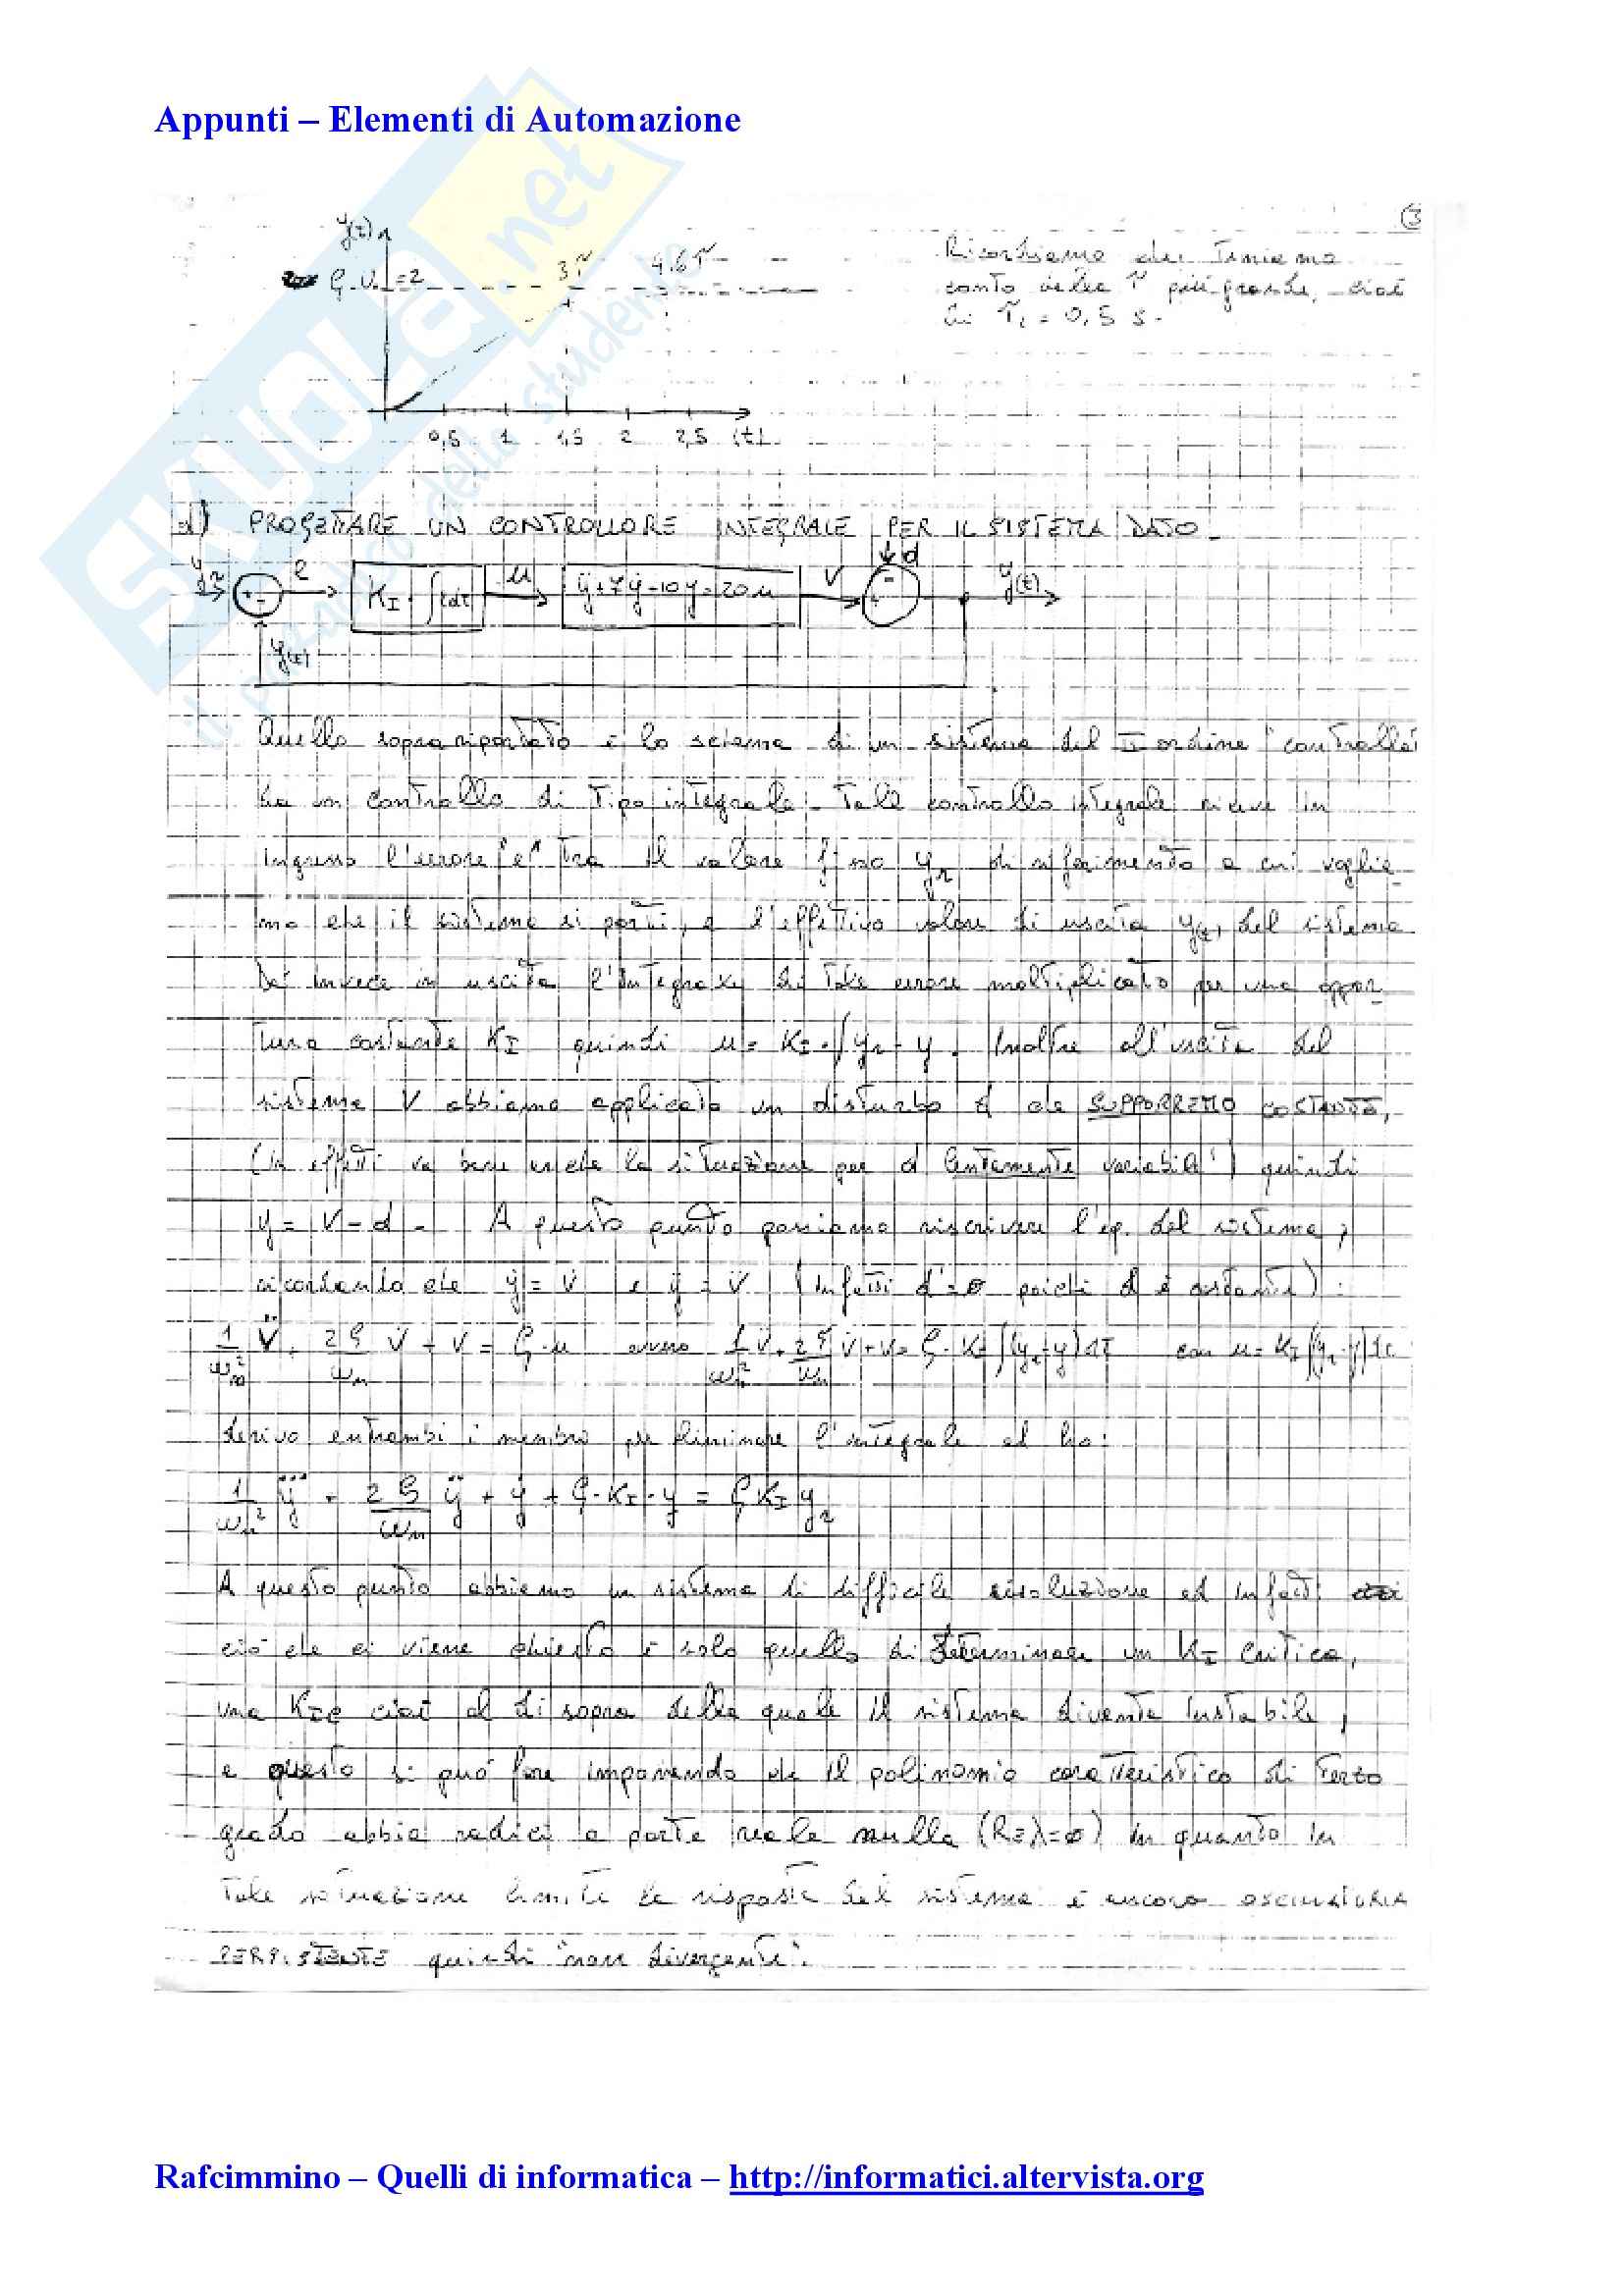 Appunti – Elementi di Automazione
3
y(t)
G·U. = 2
3τ
4.6τ
Ricordiamo che teniamo
conto della τ più grande, cioè
di τ₁ = 0,5 s.
0,5 1 1,5 2 2,5 (t)
d) PROGETTARE UN CONTROLLORE INTEGRALE PER IL SISTEMA DATO.
e
K_I·∫edτ
u
ÿ+7ẏ-10y=20u
V
d
y(t)
y(t)
Quello sopra riportato è lo schema di un sistema del II ordine "controllato"
da un controllo di tipo integrale. Tale controllo integrale riceve in
ingresso l'errore "e" tra il valore fisso y_r di riferimento a cui voglia
mo che il sistema si porti, e l'effettivo valore di uscita y(t) del sistema
Dà invece in uscita l'integrale di tale errore moltiplicato per una oppor
tuna costante K_I quindi u = K_I·∫y_r - y. Inoltre all'uscita del
sistema V abbiamo applicato un disturbo d che SUPPORREMO COSTANTE,
(in effetti va bene anche la situazione per d "lentamente variabile") quindi
y = V - d. A questo punto possiamo riscrivere l'eq. del sistema,
ricordando che ẏ = V̇ e ÿ = V̈ (infatti d' = 0 poiché d è costante):
1/ω_n² V̈ + 2ζ/ω_n V̇ + V = G·u ovvero 1/ω_n² V̈ + 2ζ/ω_n V̇ + V = G·K_I ∫(y_r-y)dτ con u = K_I ∫(y_r-y)dτ
derivo entrambi i membri per eliminare l'integrale ed ho:
1/ω_n² y⃛ + 2ζ/ω_n ÿ + ẏ + G·K_I·y = G K_I y_r
A questo punto abbiamo un sistema di difficile risoluzione ed infatti
ciò che ci viene chiesto è solo quello di determinare un K_I critico,
una K_IC cioè al di sopra della quale il sistema diventa instabile,
e questo si può fare imponendo che il polinomio caratteristico di terzo
grado abbia radici a parte reale nulla (Reλ=0) in quanto in
tale situazione limite la risposta del sistema è ancora OSCILLATORIA
PERSISTENTE quindi "non divergente".
Rafcimmino – Quelli di informatica – http://informatici.altervista.org
SKUOLA.net
il paradiso dello studente